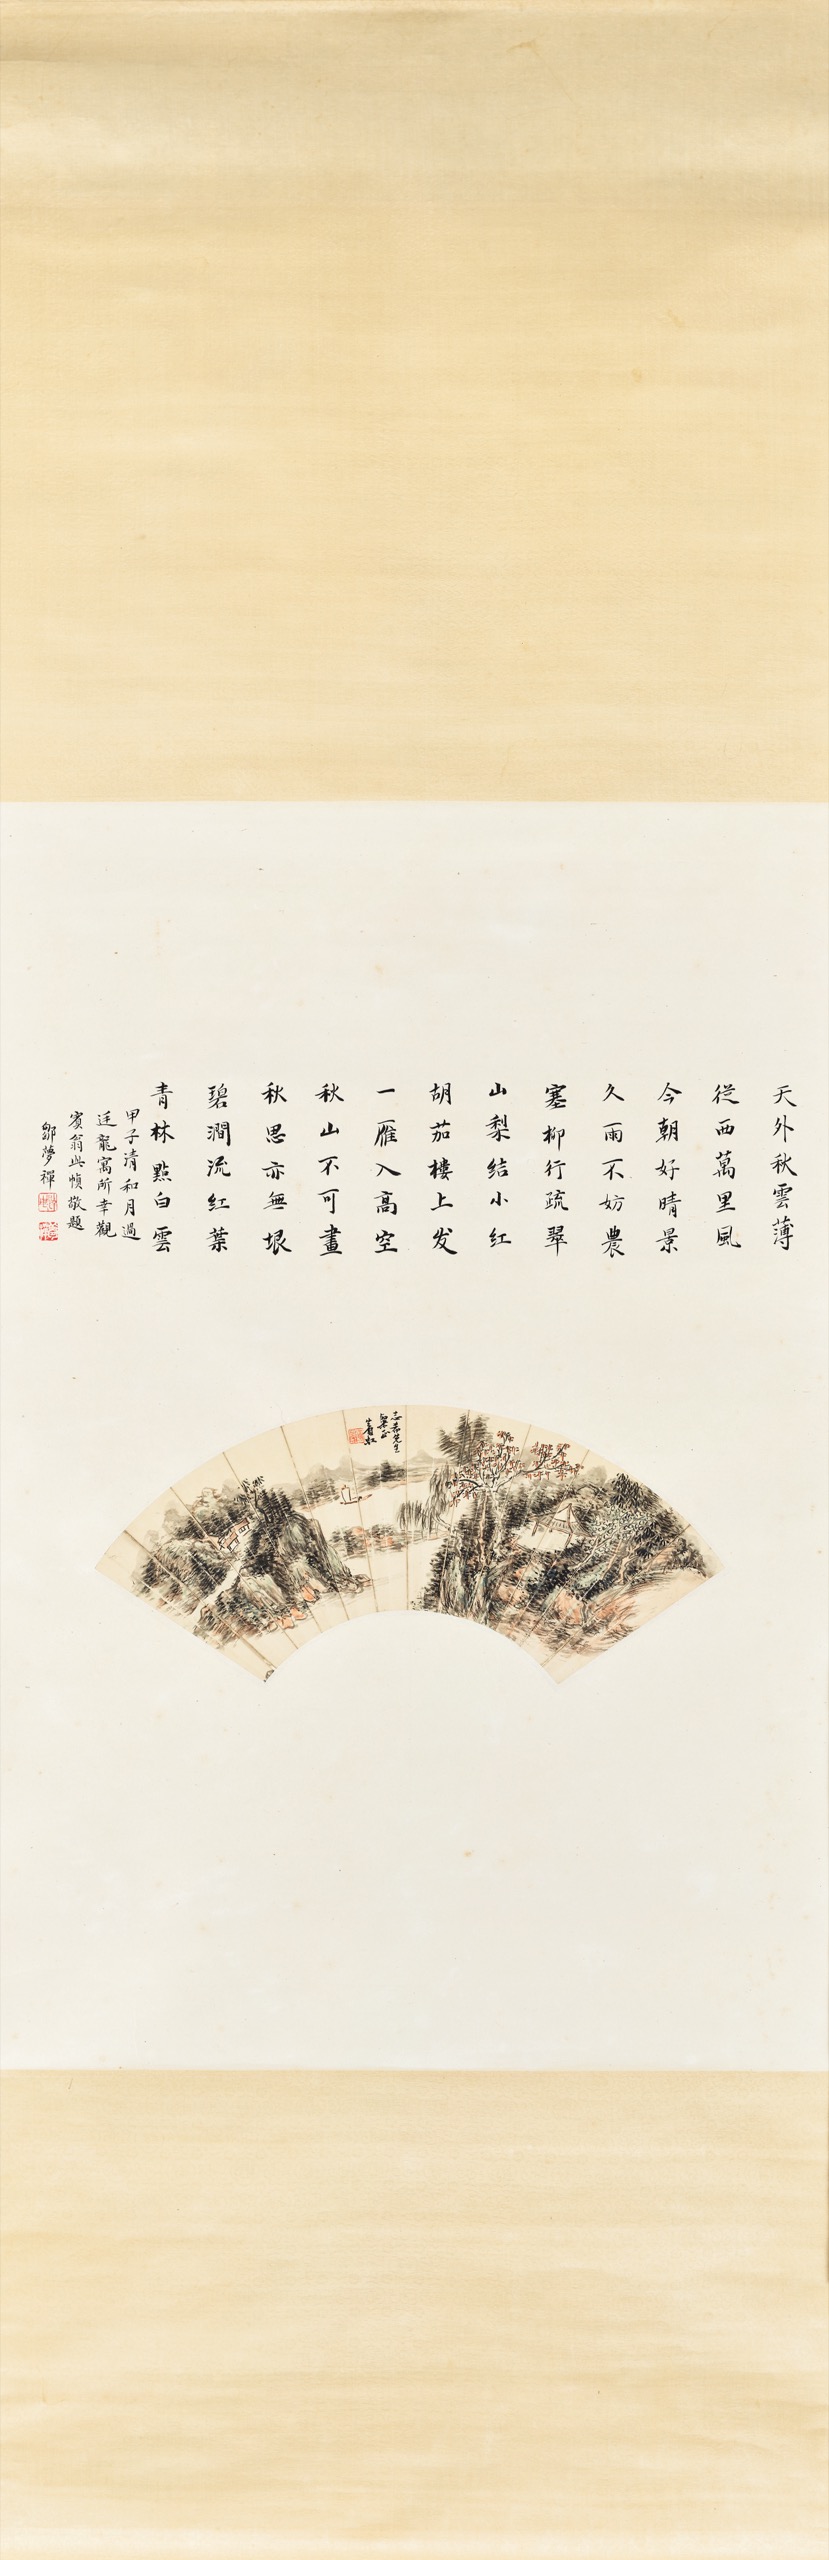 天外秋雲薄
從西萬里風
今朝好晴景
久雨不妨農
塞柳行疏翠
山梨結小紅
胡茄樓上发
一雁入高空
秋山不可畫
秋思亦無垠
碧澗流紅葉
青林點白雲
甲子清和月過
廷龍寓所幸觀
賓翁此幀敬題
鄒夢禪
志若先生
粲正
賓虹